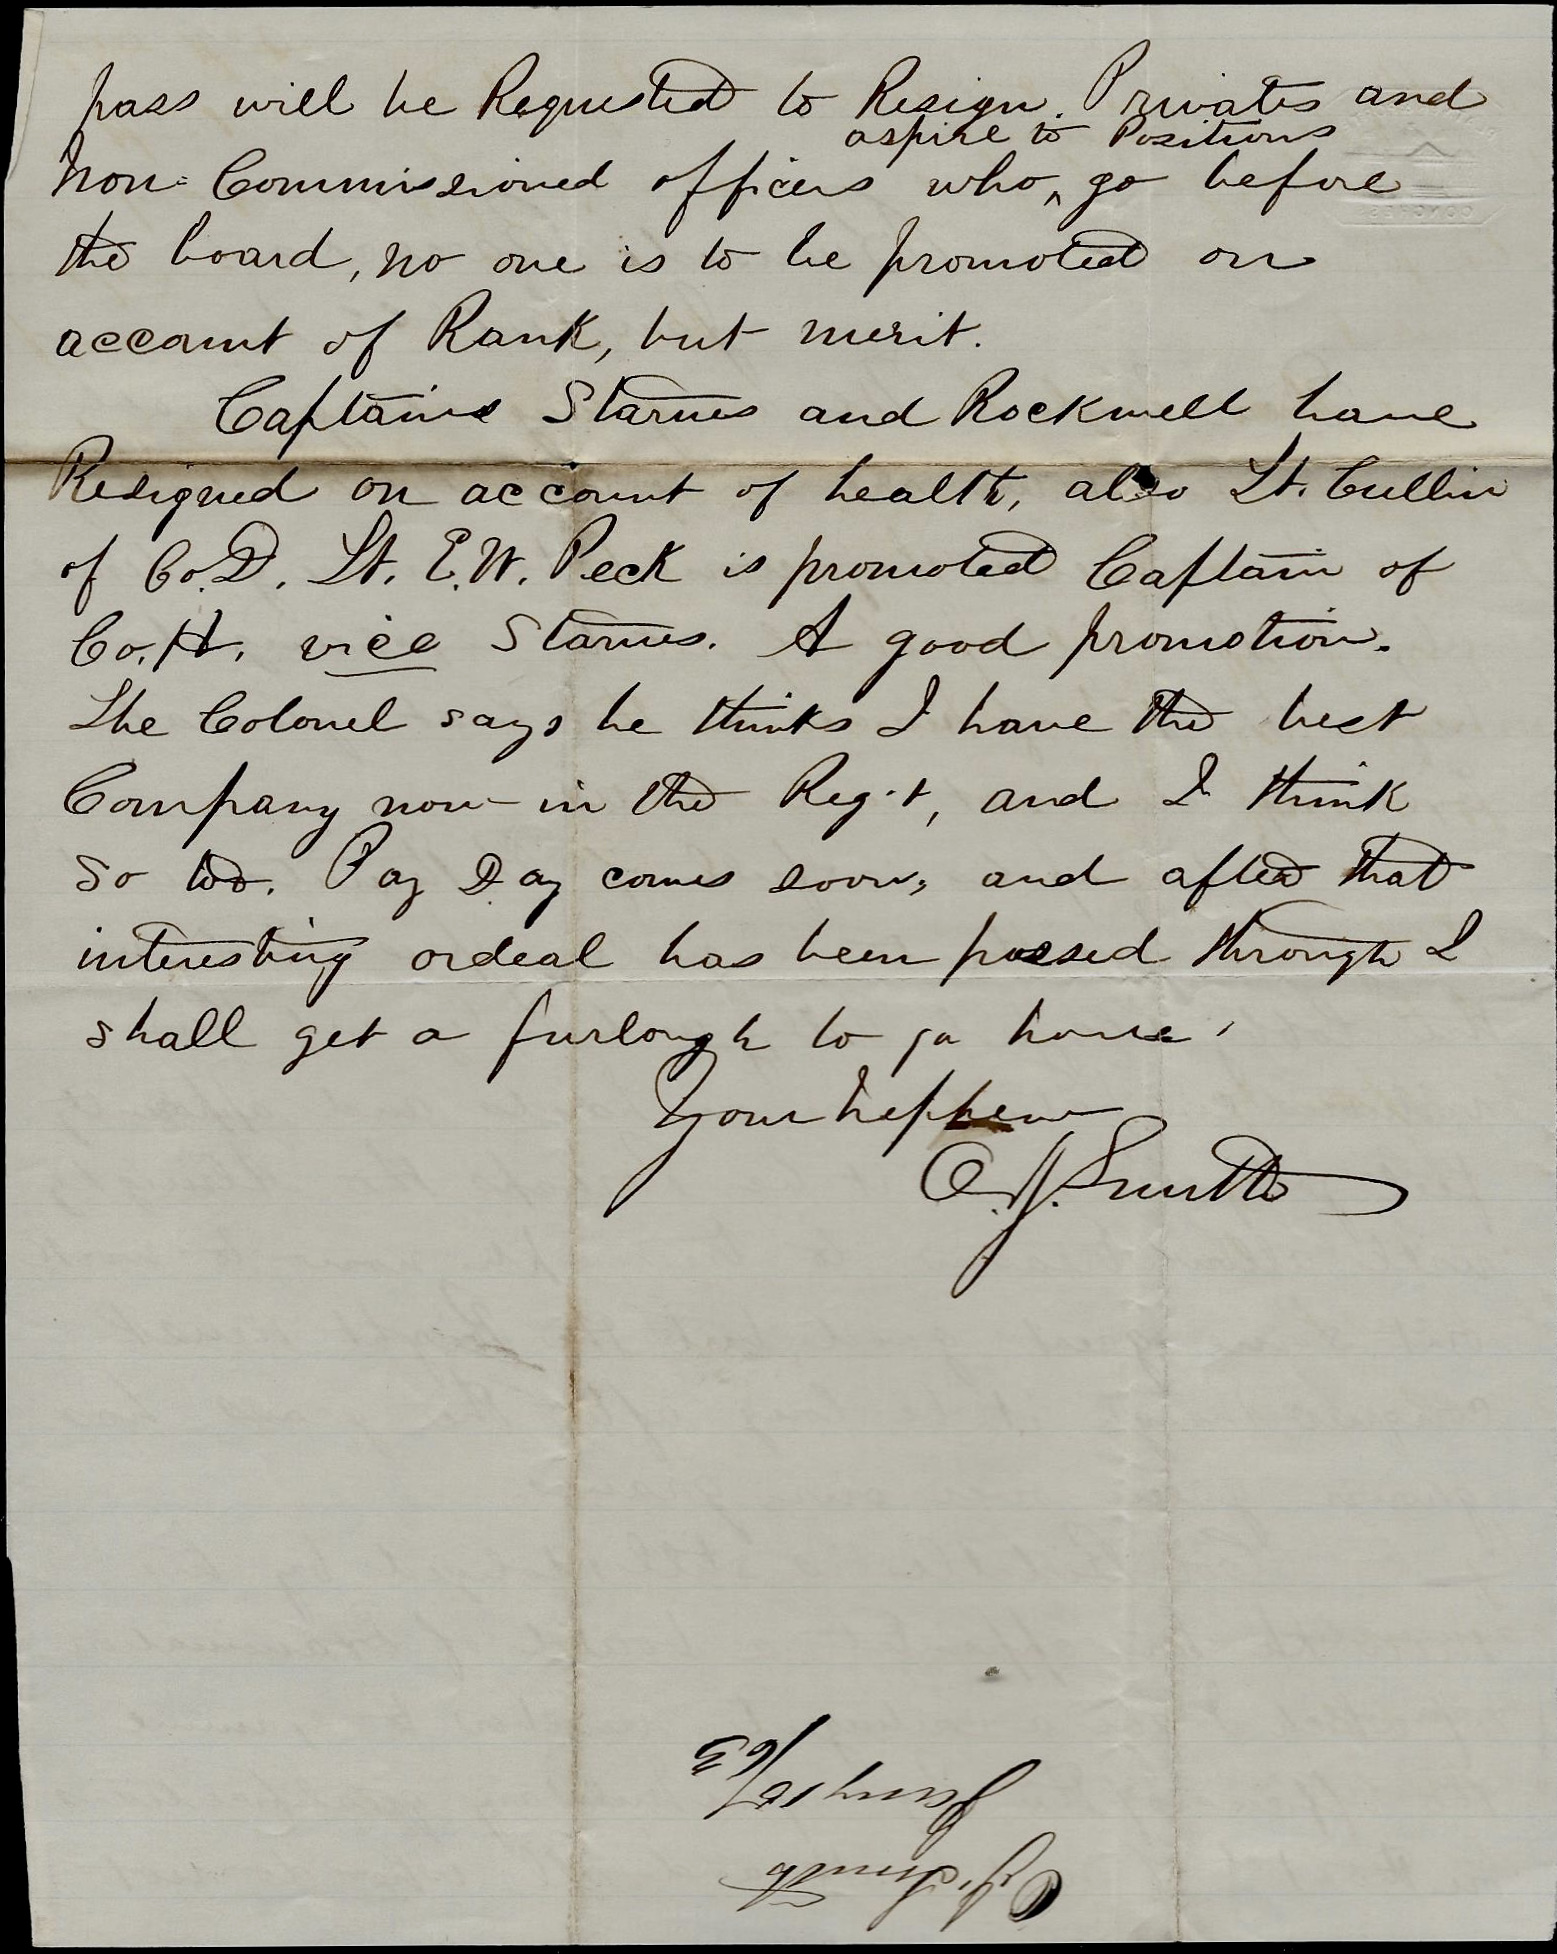 pass will be Requested to Resign. Privates and
aspire to Positions
Non-Commissioned officers who ^ go before
the board, no one is to be promoted on
account of Rank, but merit.
Captains Starnes and Rockwell have
Resigned on account of health, also Lt. Cullin
of Co. D. Lt. E. W. Peck is promoted Captain of
Co. H. vice Starnes. A good promotion.
The Colonel says he thinks I have the best
Company now in the Reg't, and I think
so too. Pay Day comes soon, and after that
interesting ordeal has been passed through I
shall get a furlough to go home.
Your nephew
C. J. Smith
CONGRESS
C J. Smith
Jany 10/63